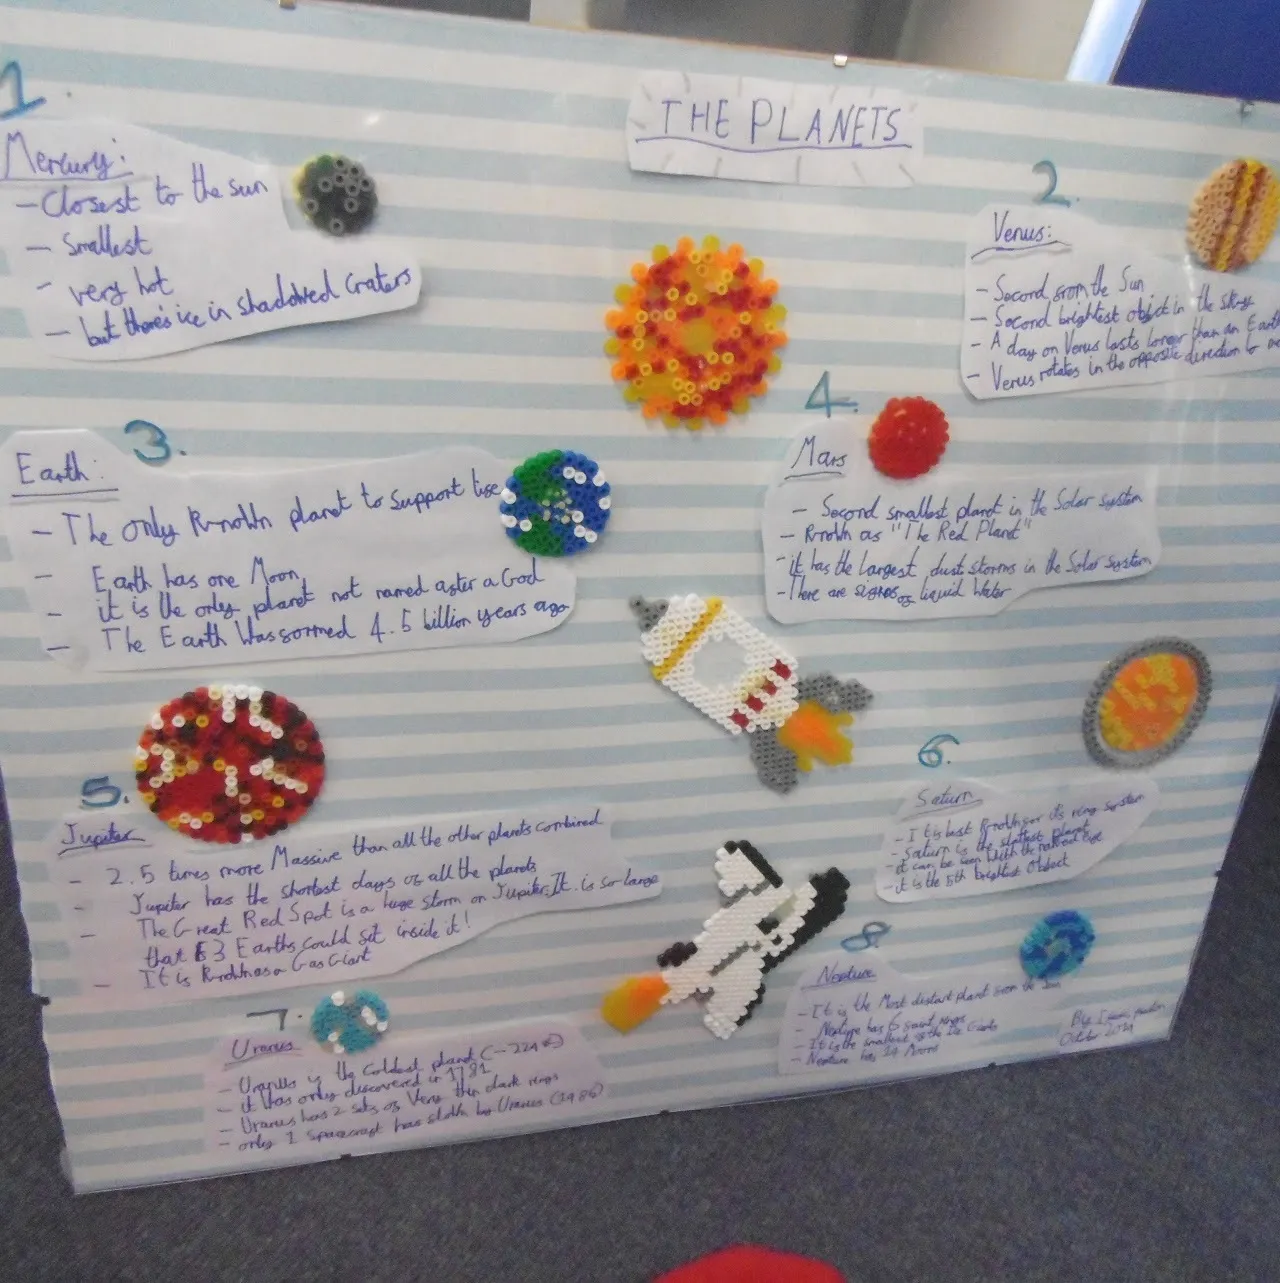 THE PLANETS
1.
Mercury:
- Closest to the sun
- Smallest
- very hot
- but there's ice in shadowed craters
2.
Venus:
- Second from the Sun
- Second brightest object in the sky
- A day on Venus lasts longer than an Earth
- Venus rotates in the opposite direction to
3.
Earth:
- The only known planet to support life
- Earth has one Moon
- it is the only planet not named after a God
- The Earth was formed 4.5 billion years ago
4.
Mars
- Second smallest planet in the Solar system
- known as "The Red Planet"
- it has the largest dust storms in the Solar system
- There are signs of liquid water
5.
Jupiter
- 2.5 times more Massive than all the other planets combined
- Jupiter has the shortest days of all the planets
- The Great Red Spot is a huge storm on Jupiter. It is so large
that 3 Earths could fit inside it!
- It is known as a Gas Giant
6.
Saturn
- It is best known for its ring system
- Saturn is the flattest planet
- it can be seen with the naked eye
- it is the 5th brightest Object
7.
Uranus
- Uranus is the Coldest planet (-224°)
- it was only discovered in 1781
- Uranus has 2 sets of Very thin dark rings
- only 1 Spacecraft has by Uranus (1986)
8.
Neptune
- It is the Most distant planet from the Sun
- Neptune has 6 faint rings
- It is the smallest of the Ice Giants
- Neptune has 14 Moons
By
October 2021